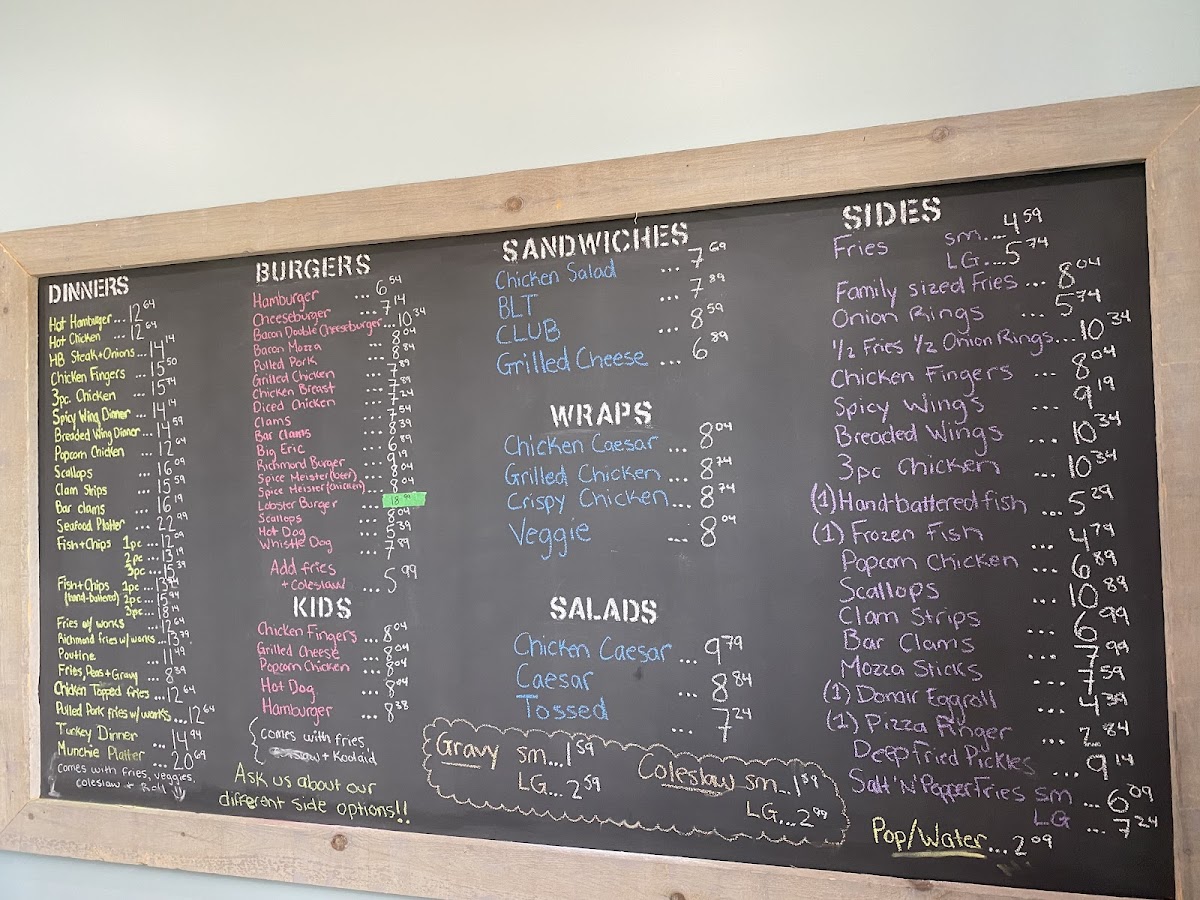 DINNERS
Hot Hamburger...12 64
Hot Chicken ...12 64
HB Steak+Onions...14 14
Chicken Fingers ...15 50
3pc. Chicken ...15 74
Spicy Wing Dinner ...14 14
Breaded Wing Dinner...14 59
Popcorn Chicken ...12 64
Scallops ...16 09
Clam Strips ...15 59
Bar clams ...16 19
Seafood Platter ...22 99
Fish+Chips 1pc ...12 09
2pc ...13 19
3pc ...15 39
Fish+Chips 1pc ...13 94
(hand-battered) 2pc ...15 94
3pc ...18 14
Fries w/ works ...12 64
Richmond fries w/ works ...13 79
Poutine ...11 49
Fries, Peas+Gravy ...8 39
Chicken Topped fries...12 64
Pulled Pork fries w/works...12 64
Turkey Dinner ...14 94
Munchie Platter ...20 69
comes with fries, veggies,
coleslaw + Roll
BURGERS
Hamburger ...6 54
Cheeseburger ...7 14
Bacon Double Cheeseburger...10 34
Bacon Mozza ...8 04
Pulled Pork ...8 84
Grilled Chicken ...7 89
Chicken Breast ...7 89
Diced Chicken ...7 24
Clams ...7 54
Bar Clams ...8 39
Big Eric ...6 89
Richmond Burger ...9 19
Spice Meister (beef) ...8 04
Spice Meister (chicken) ...8 04
Lobster Burger ...18.99
Scallops ...8 04
Hot Dog ...5 39
Whistle Dog ...7 89
Add fries
+ Coleslaw ...5 99
KIDS
Chicken Fingers ...8 04
Grilled Cheese ...8 04
Popcorn Chicken ...8 04
Hot Dog ...8 04
Hamburger ...8 38
comes with fries
+ Koolaid
Ask us about our
different side options!!
SANDWICHES
Chicken Salad ...7 69
BLT ...7 89
CLUB ...8 59
Grilled Cheese ...6 89
WRAPS
Chicken Caesar ...8 04
Grilled Chicken ...8 74
Crispy Chicken...8 74
Veggie ...8 04
SALADS
Chicken Caesar ...9 79
Caesar ...8 84
Tossed ...7 24
Gravy sm...1 59
LG...2 59
Coleslaw sm...1 89
LG...2 99
SIDES
Fries sm...4 59
LG...5 74
Family sized Fries ...8 04
Onion Rings ...5 74
1/2 Fries 1/2 Onion Rings...10 34
Chicken Fingers ...8 04
Spicy Wings ...9 19
Breaded Wings ...10 34
3pc Chicken ...10 34
(1) Hand-battered fish ...5 29
(1) Frozen Fish ...4 79
Popcorn Chicken ...6 89
Scallops ...10 89
Clam Strips ...6 99
Bar Clams ...7 99
Mozza Sticks ...7 59
(1) Donair Eggroll ...4 39
(1) Pizza Finger ...7 84
Deep Fried Pickles ...9 14
Salt 'N' Pepper Fries sm ...6 09
LG ...7 24
Pop/Water...2 09